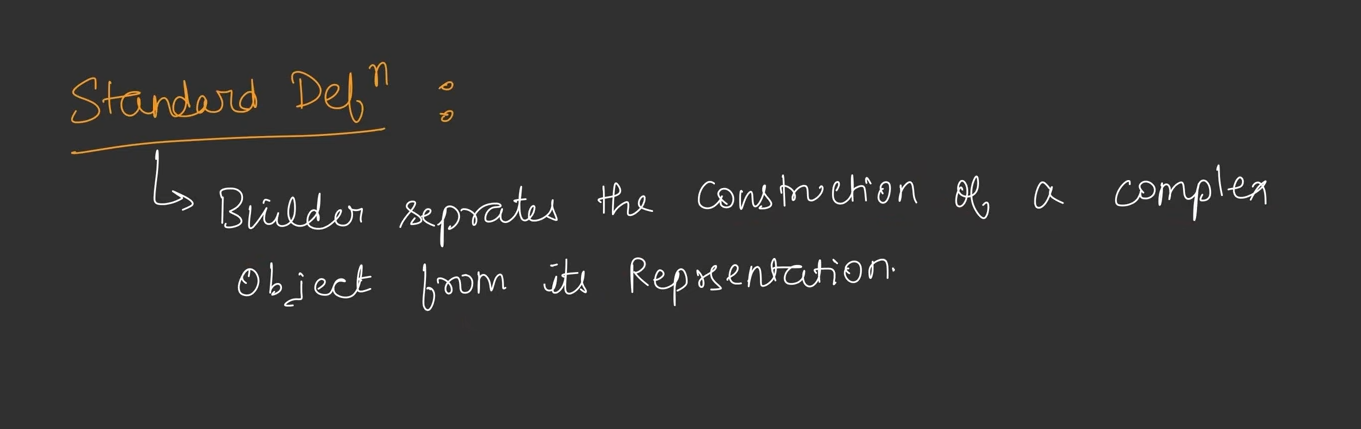 Standard Defⁿ :
Builder seprates the construction of a complex
Object from its Reprsentation.